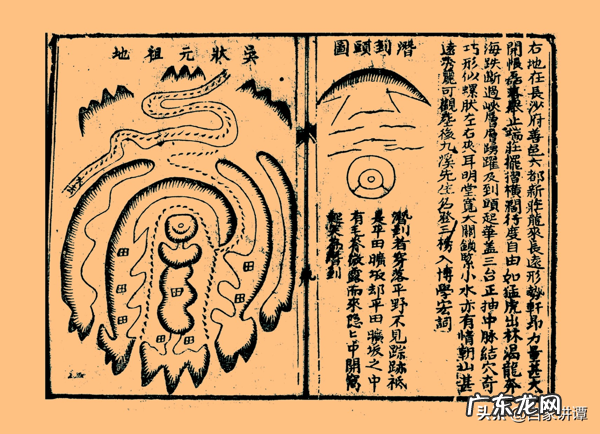 右地在長沙府善邑六都新莊龍來長遠形勢軒昂力量甚大
開帳磊落聚止端莊擺摺橫闊行度自由如猛虎出林渴龍奔
海跌斷過峽層層踴躍及到頭起華蓋三台正抽中脉結穴奇
巧形似螺狀左右夾耳明堂寬大關鎖緊小水亦有情朝山甚
遠秀麗可觀塟後九溪先生名登三榜入博學宏詞
潛到頭圖
潛到者穿落平野不見踪跡祗
是平田曠坂却平田曠坂之中
有毛脊微露而來隱上中開窩
吳狀元祖地
田
田
田
田
田
田
田
田
广东龙网